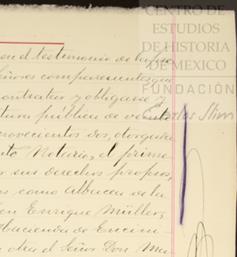 CENTRO DE
ESTUDIOS
DE HISTORIA
DE MEXICO
FUNDACIÓN
Carlos Slim
en el testimonio de
señores comparecientes que
contratar y obligarse
tura pública de veinte
novecientos dos, otorgada
Notario, el prime
sus derechos propios,
es como Albacea de la
Don Enrique Müller,
Hacienda de Encini
otra el Señor Don Ma